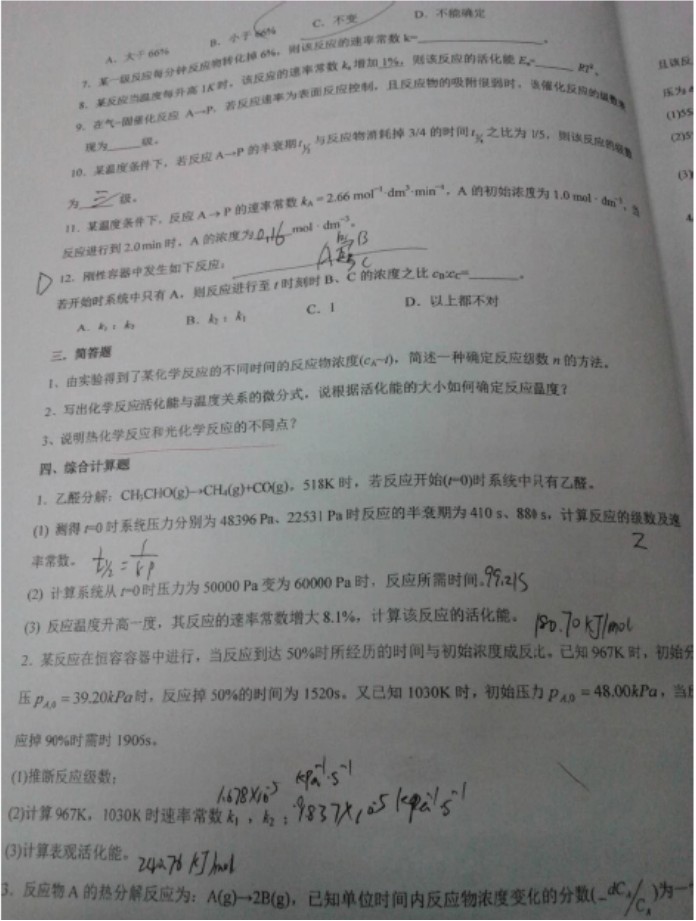 A. 大于66% B. 小于66% C. 不变 D. 不能确定
7. 某一级反应每分钟反应物转化掉 6%, 则该反应的速率常数 k=______。
8. 某反应当温度每升高 1K 时, 该反应的速率常数 kₐ 增加 1%, 则该反应的活化能 Eₐ=____ RT²。
9. 在气-固催化反应 A→P, 若反应速率为表面反应控制, 且反应物的吸附很弱时, 该催化反应的级数
现为____级。
10. 某温度条件下, 若反应 A→P 的半衰期 t½ 与反应物消耗掉 3/4 的时间 t¾ 之比为 1/5, 则该反应的级数
为 三 级。
11. 某温度条件下, 反应 A→P 的速率常数 kA = 2.66 mol⁻¹·dm³·min⁻¹, A 的初始浓度为 1.0 mol·dm⁻³, 当
反应进行到 2.0 min 时, A 的浓度为 0.16 mol·dm⁻³。
D 12. 刚性容器中发生如下反应: A B C
若开始时系统中只有 A, 则反应进行至 t 时刻时 B、C 的浓度之比 cB:cC=______。
A. k₁:k₂ B. k₂:k₁ C. 1 D. 以上都不对
三、简答题
1、由实验得到了某化学反应的不同时间的反应物浓度(cA~t), 简述一种确定反应级数 n 的方法。
2、写出化学反应活化能与温度关系的微分式, 说根据活化能的大小如何确定反应温度?
3、说明热化学反应和光化学反应的不同点?
四、综合计算题
1. 乙醛分解: CH₃CHO(g)→CH₄(g)+CO(g), 518K 时, 若反应开始(t=0)时系统中只有乙醛。
(1) 测得 t=0 时系统压力分别为 48396 Pa、22531 Pa 时反应的半衰期为 410 s、880 s, 计算反应的级数及速
率常数。 t½ = 1/kp 2
(2) 计算系统从 t=0 时压力为 50000 Pa 变为 60000 Pa 时, 反应所需时间。 99.21S
(3) 反应温度升高一度, 其反应的速率常数增大 8.1%, 计算该反应的活化能。 180.70 kJ/mol
2. 某反应在恒容容器中进行, 当反应到达 50%时所经历的时间与初始浓度成反比。已知 967K 时, 初始分
压 pA,0 = 39.20kPa 时, 反应掉 50%的时间为 1520s。又已知 1030K 时, 初始压力 pA,0 = 48.00kPa, 当
应掉 90%时需时 1905s。
(1)推断反应级数;
1.678×10⁻⁵ kPa⁻¹·s⁻¹
(2)计算 967K, 1030K 时速率常数 k₁, k₂; 9.837×10⁻⁵ kPa⁻¹ s⁻¹
(3)计算表观活化能。 242.76 kJ/mol
3. 反应物 A 的热分解反应为: A(g)→2B(g), 已知单位时间内反应物浓度变化的分数(-dCA/CA)为一
且该反
压为
(1)55
(2)5
(3)
4.